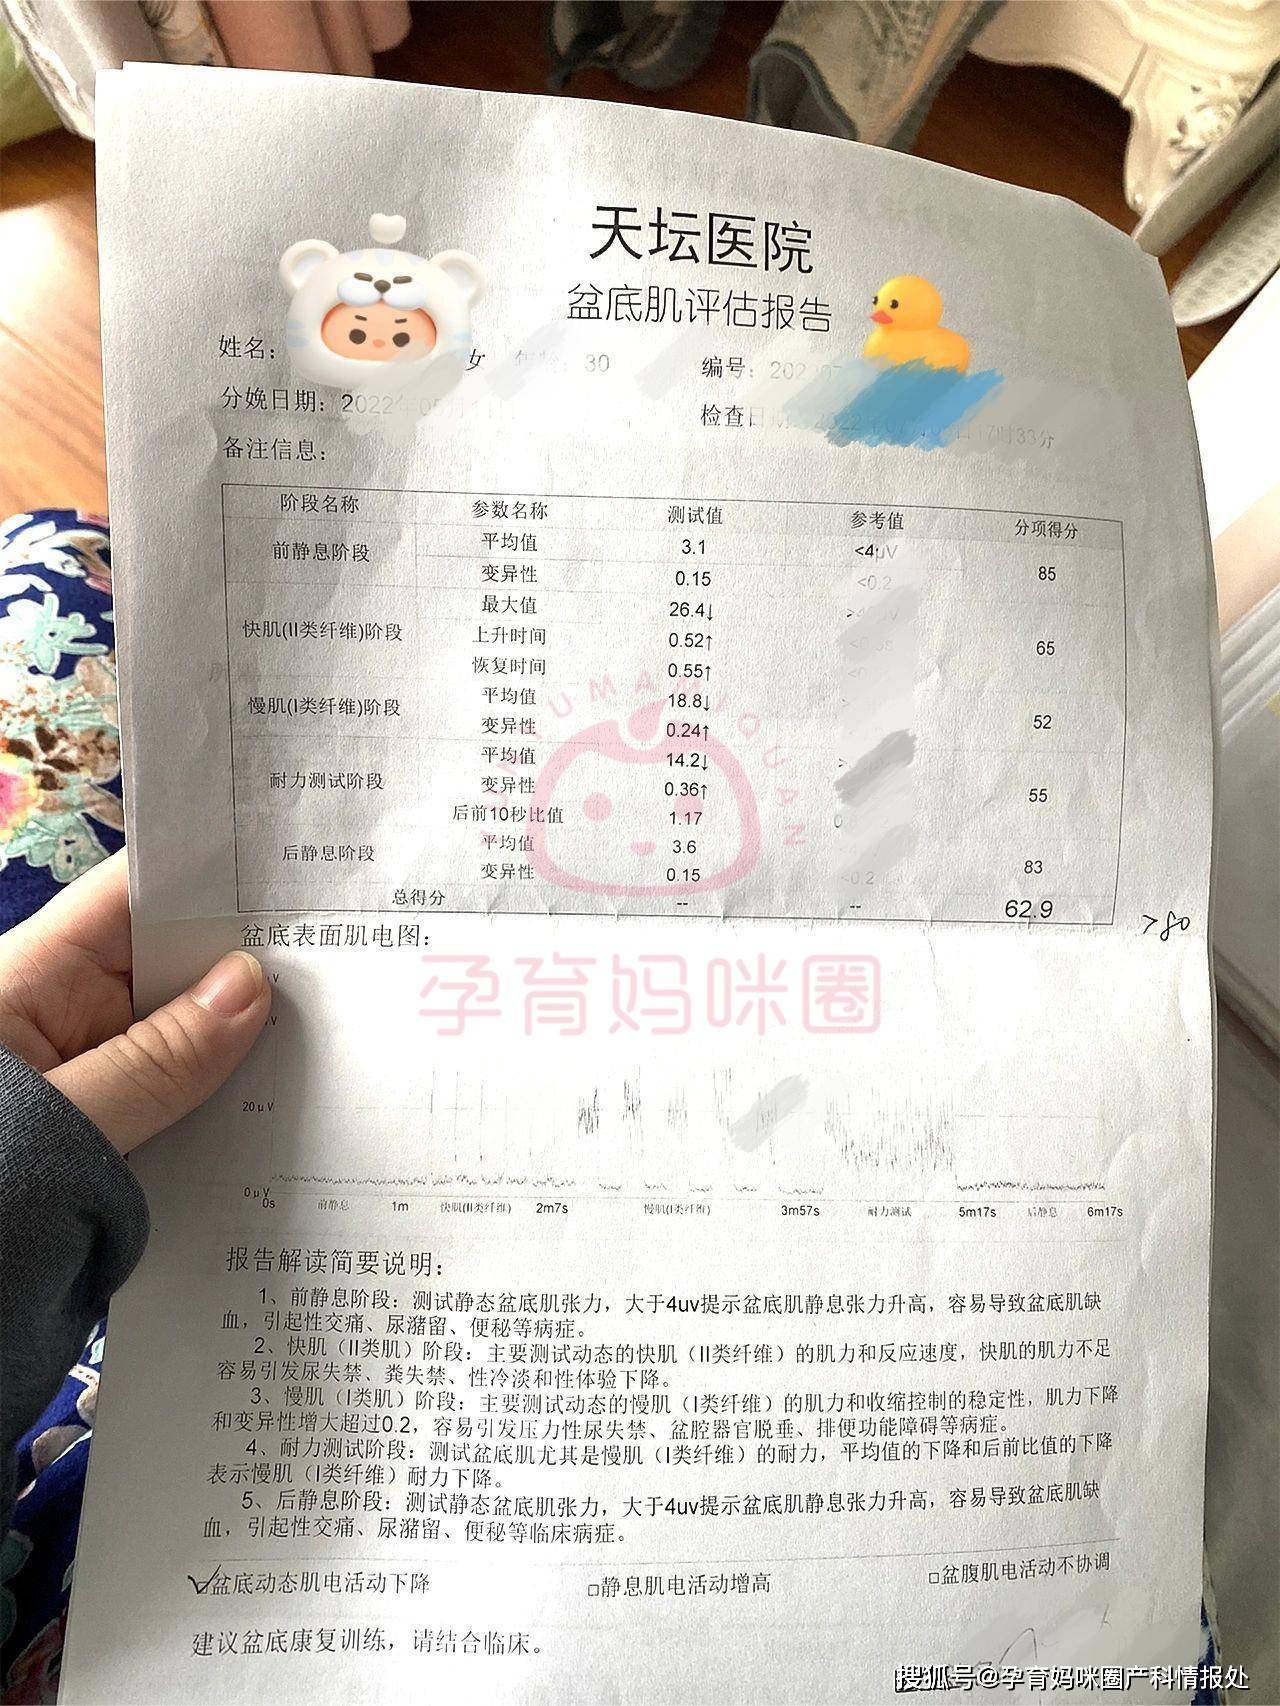 天坛医院
盆底肌评估报告
姓名： 女 年龄：30 编号：
分娩日期：2022年05月
检查日期
备注信息：
阶段名称 参数名称 测试值 参考值 分项得分
前静息阶段 平均值 3.1 <4μV 85
变异性 0.15 <0.2
快肌(II类纤维)阶段 最大值 26.4↓ 65
上升时间 0.52↑
恢复时间 0.55↑
慢肌(I类纤维)阶段 平均值 18.8↓ 52
变异性 0.24↑
耐力测试阶段 平均值 14.2↓ 55
变异性 0.36↑
后前10秒比值 1.17
后静息阶段 平均值 3.6 83
变异性 0.15 <0.2
总得分 -- -- 62.9
>80
盆底表面肌电图：
孕育妈咪圈
20μV
0μV
0s 前静息 1m 快肌(II类纤维) 2m7s 慢肌(I类纤维) 3m57s 耐力测试 5m17s 后静息 6m17s
报告解读简要说明：
1、前静息阶段：测试静态盆底肌张力，大于4uv提示盆底肌静息张力升高，容易导致盆底肌缺
血，引起性交痛、尿潴留、便秘等病症。
2、快肌（II类肌）阶段：主要测试动态的快肌（II类纤维）的肌力和反应速度，快肌的肌力不足
容易引发尿失禁、粪失禁、性冷淡和性体验下降。
3、慢肌（I类肌）阶段：主要测试动态的慢肌（I类纤维）的肌力和收缩控制的稳定性，肌力下降
和变异性增大超过0.2，容易引发压力性尿失禁、盆腔器官脱垂、排便功能障碍等病症。
4、耐力测试阶段：测试盆底肌尤其是慢肌（I类纤维）的耐力，平均值的下降和后前比值的下降
表示慢肌（I类纤维）耐力下降。
5、后静息阶段：测试静态盆底肌张力，大于4uv提示盆底肌静息张力升高，容易导致盆底肌缺
血，引起性交痛、尿潴留、便秘等临床病症。
☑盆底动态肌电活动下降 □静息肌电活动增高 □盆腹肌电活动不协调
建议盆底康复训练，请结合临床。
搜狐号@孕育妈咪圈产科情报处